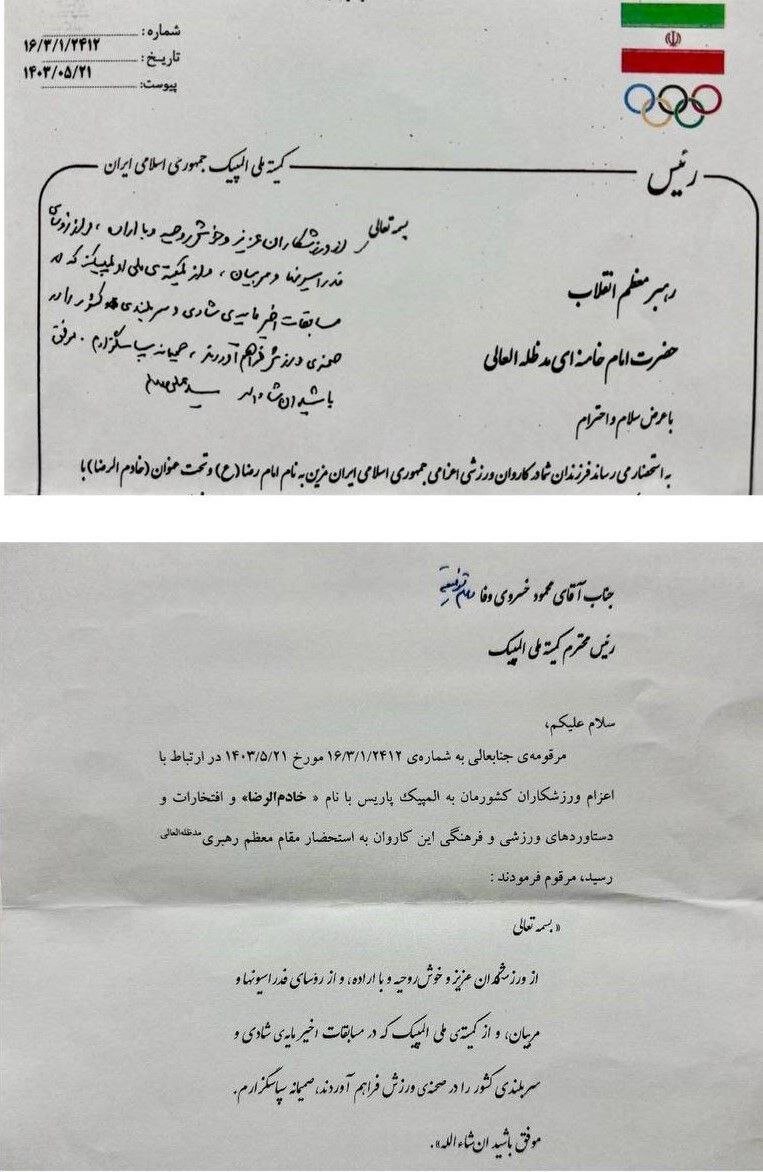 شماره:
۱۶/۳/۱/۲۴۱۲
تاریخ:
۱۴۰۳/۰۵/۲۱
پیوست:
رئیس
کمیته ملی المپیک جمهوری اسلامی ایران
بسمه تعالی
از ورزشکاران عزیز و خوش روحیه و با اراده، و از رؤسای
فدراسیونها و مربیان، و از کمیته‌ی ملی المپیک که در
مسابقات اخیر مایه‌ی شادی و سربلندی کشور را در
صحنه‌ی ورزش فراهم آوردند، صمیمانه سپاسگزارم. موفق
باشید ان شاءالله سیدعلی
رهبر معظم انقلاب
حضرت امام خامنه ای مدظله العالی
با عرض سلام و احترام
به استحضار می رساند فرزندان شما در کاروان ورزشی اعزامی جمهوری اسلامی ایران مزین به نام امام رضا (ع) و تحت عنوان (خادم الرضا) با
جناب آقای محمود خسروی وفا
رئیس محترم کمیته ملی المپیک
سلام علیکم،
مرقومه‌ی جنابعالی به شماره‌ی ۱۶/۳/۱/۲۴۱۲ مورخ ۱۴۰۳/۵/۲۱ در ارتباط با
اعزام ورزشکاران کشورمان به المپیک پاریس با نام « خادم‌الرضا» و افتخارات و
دستاوردهای ورزشی و فرهنگی این کاروان به استحضار مقام معظم رهبری مدظله‌العالی
رسید، مرقوم فرمودند :
« بسمه تعالی
از ورزشکاران عزیز و خوش روحیه و با اراده، و از رؤسای فدراسیونها و
مربیان، و از کمیته‌ی ملی المپیک که در مسابقات اخیر مایه‌ی شادی و
سربلندی کشور را در صحنه‌ی ورزش فراهم آوردند، صمیمانه سپاسگزارم.
موفق باشید ان شاءالله».